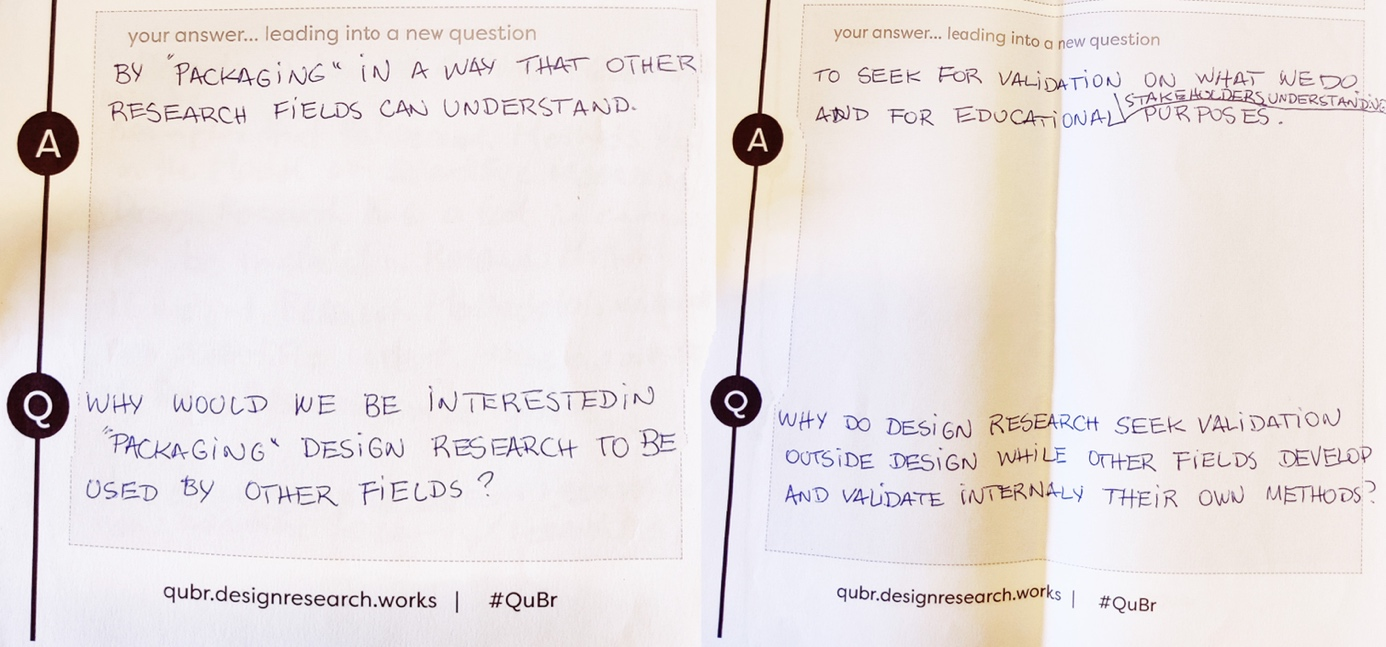 your answer... leading into a new question
BY "PACKAGING" IN A WAY THAT OTHER
RESEARCH FIELDS CAN UNDERSTAND.
A
Q
WHY WOULD WE BE INTERESTED IN
"PACKAGING" DESIGN RESEARCH TO BE
USED BY OTHER FIELDS?
qubr.designresearch.works | #QuBr
your answer... leading into a new question
TO SEEK FOR VALIDATION ON WHAT WE DO
STAKEHOLDERS UNDERSTANDING
AND FOR EDUCATIONAL PURPOSES.
A
Q
WHY DO DESIGN RESEARCH SEEK VALIDATION
OUTSIDE DESIGN WHILE OTHER FIELDS DEVELOP
AND VALIDATE INTERNALY THEIR OWN METHODS?
qubr.designresearch.works | #QuBr